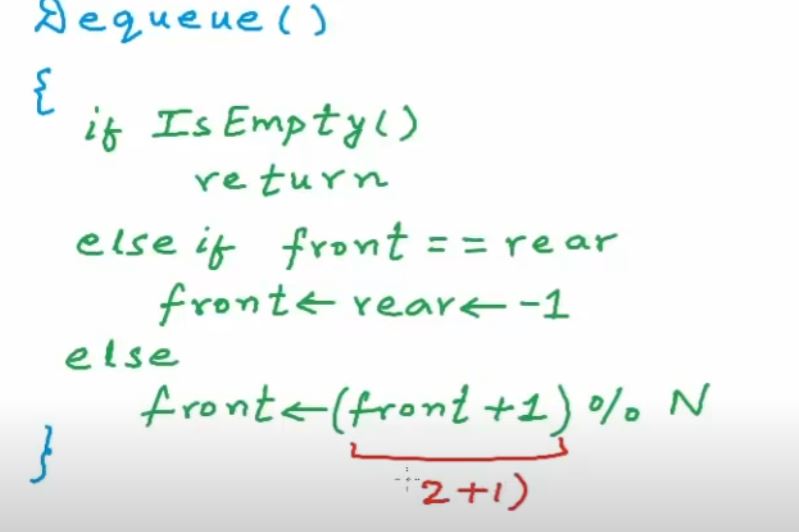 Dequeue()
{
if IsEmpty()
return
else if front == rear
front ← rear ← -1
else
front ← (front +1) % N
}
2+1)